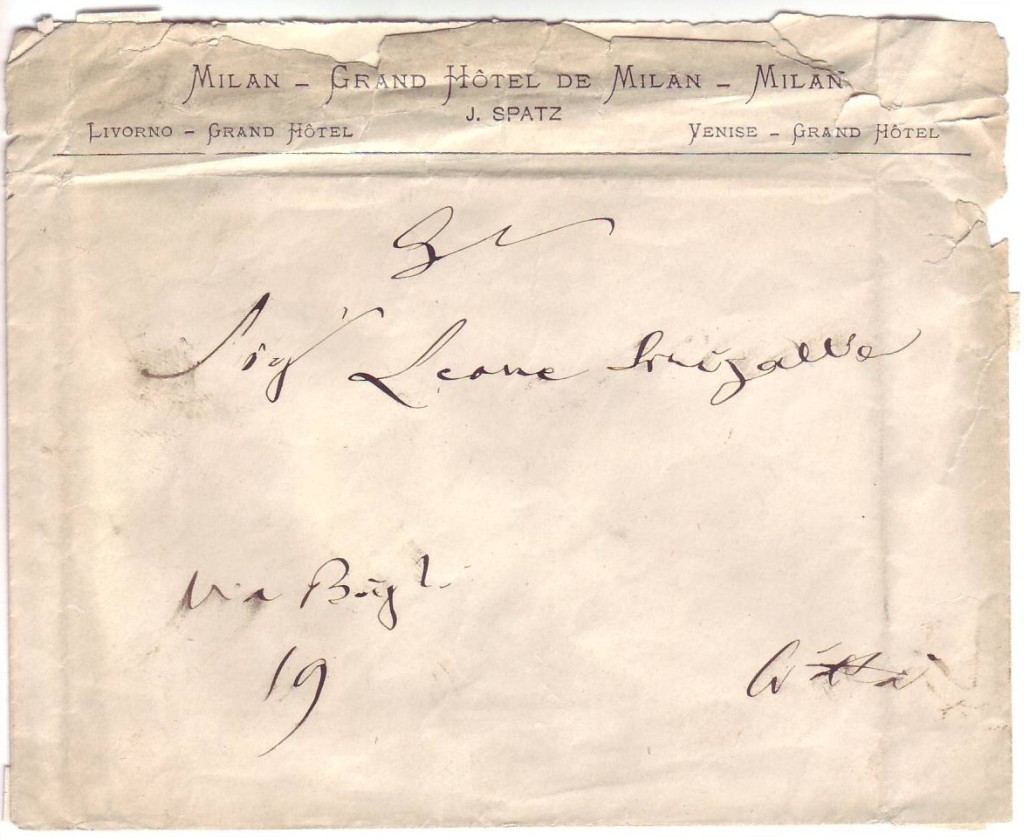 MILAN – GRAND HÔTEL DE MILAN – MILAN
J. SPATZ
LIVORNO – GRAND HÔTEL
VENISE – GRAND HÔTEL
Sigr Leone
Via Bigli
19
Città